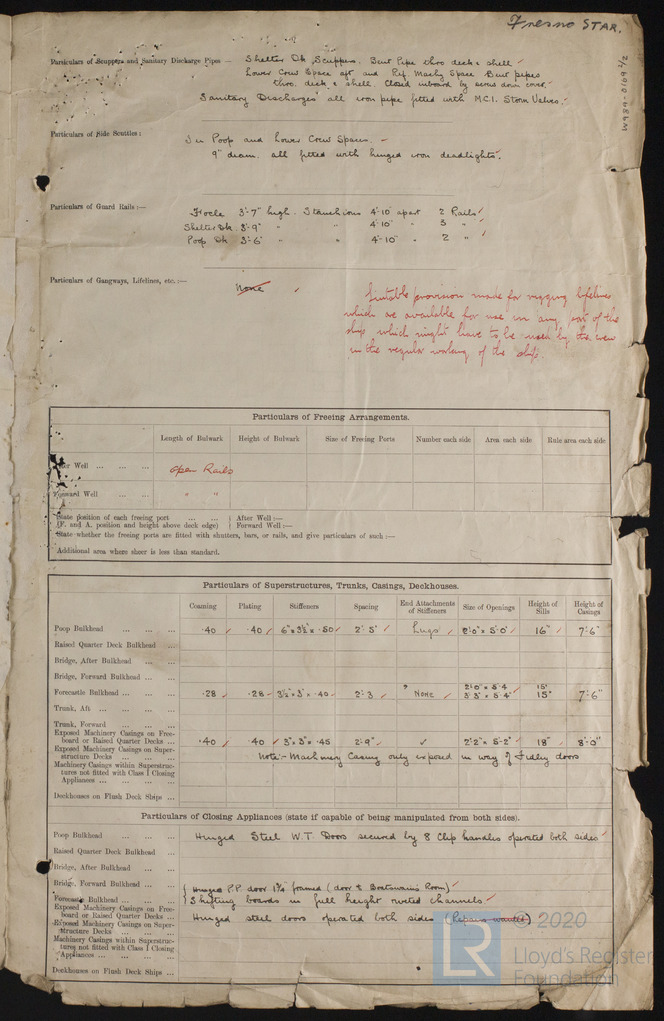 Fresno STAR.
W984-0169 2/2
Particulars of Scuppers and Sanitary Discharge Pipes — Shelter Dk Scuppers. Bent Pipe thro deck & shell
Lower Crew Space aft and Ref. Machy Space Bent pipes
thro. deck & shell closed inboard by screw down cover.
Sanitary Discharges all iron pipe fitted with M.C.I. Storm Valves.
Particulars of Side Scuttles :
In Poop and Lower Crew Spaces. —
9" diam. all fitted with hinged iron deadlights.
Particulars of Guard Rails :—
Focle 3'-7" high. Stanchions 4'-10" apart 2 Rails
Shelter Dk 3'-9" " " 4'-10" " 3 "
Poop Dk 3'-6" " " 4'-10" " 2 "
Particulars of Gangways, Lifelines, etc. :—
None
Suitable provision made for rigging lifelines
which are available for use in any part of the
ship which might have to be used by the crew
in the regular working of the ship.
Particulars of Freeing Arrangements.
Length of Bulwark Height of Bulwark Size of Freeing Ports Number each side Area each side Rule area each side
After Well ... ... ... Open Rails
Forward Well ... ... " "
State position of each freeing port ... ... { After Well :—
(F. and A. position and height above deck edge) { Forward Well :—
State whether the freeing ports are fitted with shutters, bars, or rails, and give particulars of such :—
Additional area where sheer is less than standard.
Particulars of Superstructures, Trunks, Casings, Deckhouses.
Coaming Plating Stiffeners Spacing End Attachments of Stiffeners Size of Openings Height of Sills Height of Casings
Poop Bulkhead ... ... ... .40 .40 6" x 3½" x .50 2'-5" Lugs 2'-0" x 5'-0" 16" 7'-6"
Raised Quarter Deck Bulkhead ...
Bridge, After Bulkhead ... ...
Bridge, Forward Bulkhead ... ...
Forecastle Bulkhead ... ... ... .28 .28 3½" x 3" x .40 2'-3 None 2'-0" x 5'-4 3'-3" x 5'-4" 15" 15" 7'-6"
Trunk, Aft ... ... ... ...
Trunk, Forward ... ... ...
Exposed Machinery Casings on Free-
board or Raised Quarter Decks ... .40 .40 3" x 3" x .45 2'-9" 2'-2" x 5'-2" 18" 8'-0"
Exposed Machinery Casings on Super-
structure Decks ... ... ... Note:- Machinery Casing only exposed in way of Fidley doors
Machinery Casings within Superstruc-
tures not fitted with Class I Closing
Appliances ... ... ... ...
Deckhouses on Flush Deck Ships ...
Particulars of Closing Appliances (state if capable of being manipulated from both sides).
Poop Bulkhead ... ... ... Hinged Steel W.T. Doors secured by 8 Clip handles operated both sides
Raised Quarter Deck Bulkhead ...
Bridge, After Bulkhead ... ...
Bridge, Forward Bulkhead ... ... { Hinged P.P. door 1¾ framed (door to Boatswains Room)
Forecastle Bulkhead ... ... ... { Shifting boards in full height riveted channels.
Exposed Machinery Casings on Free-
board or Raised Quarter Decks ... Hinged steel doors operated both sides (Repairs wanted)
Exposed Machinery Casings on Super-
structure Decks ... ... ...
Machinery Casings within Superstruc-
tures not fitted with Class I Closing
Appliances ... ... ... ...
Deckhouses on Flush Deck Ships ...
LR
© 2020
Lloyd's Register
Foundation